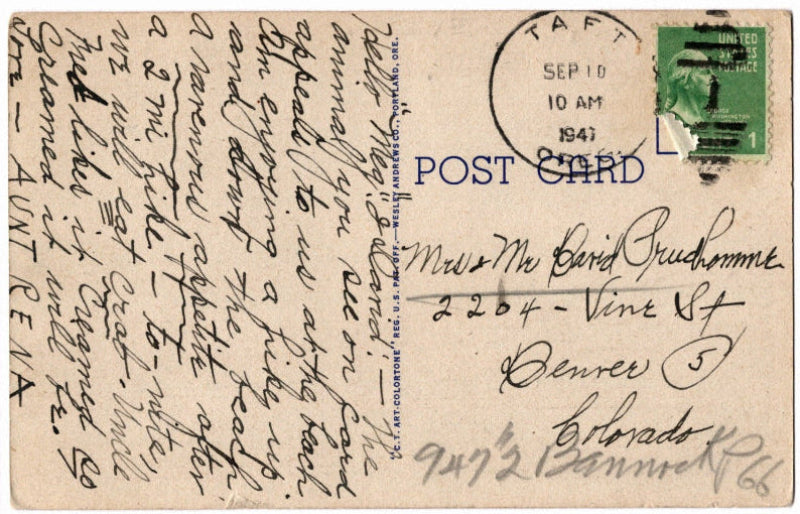 Hello "Meg" & David! - The
animal you see on card
appeals to us at the beach
Am enjoying a hike up
and down the beach
a ravenous appetite after
a 2 mi. hike - to-nite,
we will eat crab. Uncle
Fred likes it Creamed so
Creamed it will be.
Note - AUNT RENA
"C.T. ART-COLORTONE" REG. U.S. PAT. OFF. — WESLEY ANDREWS CO., PORTLAND, ORE.
TAFT
SEP 10
10 AM
1941
OREG.
UNITED
STATES
POSTAGE
GEORGE
WASHINGTON
1
POST CARD
Mrs & Mr David Prudhomme
2204 - Vine St
Denver (5)
Colorado.
947½ Bannock
66